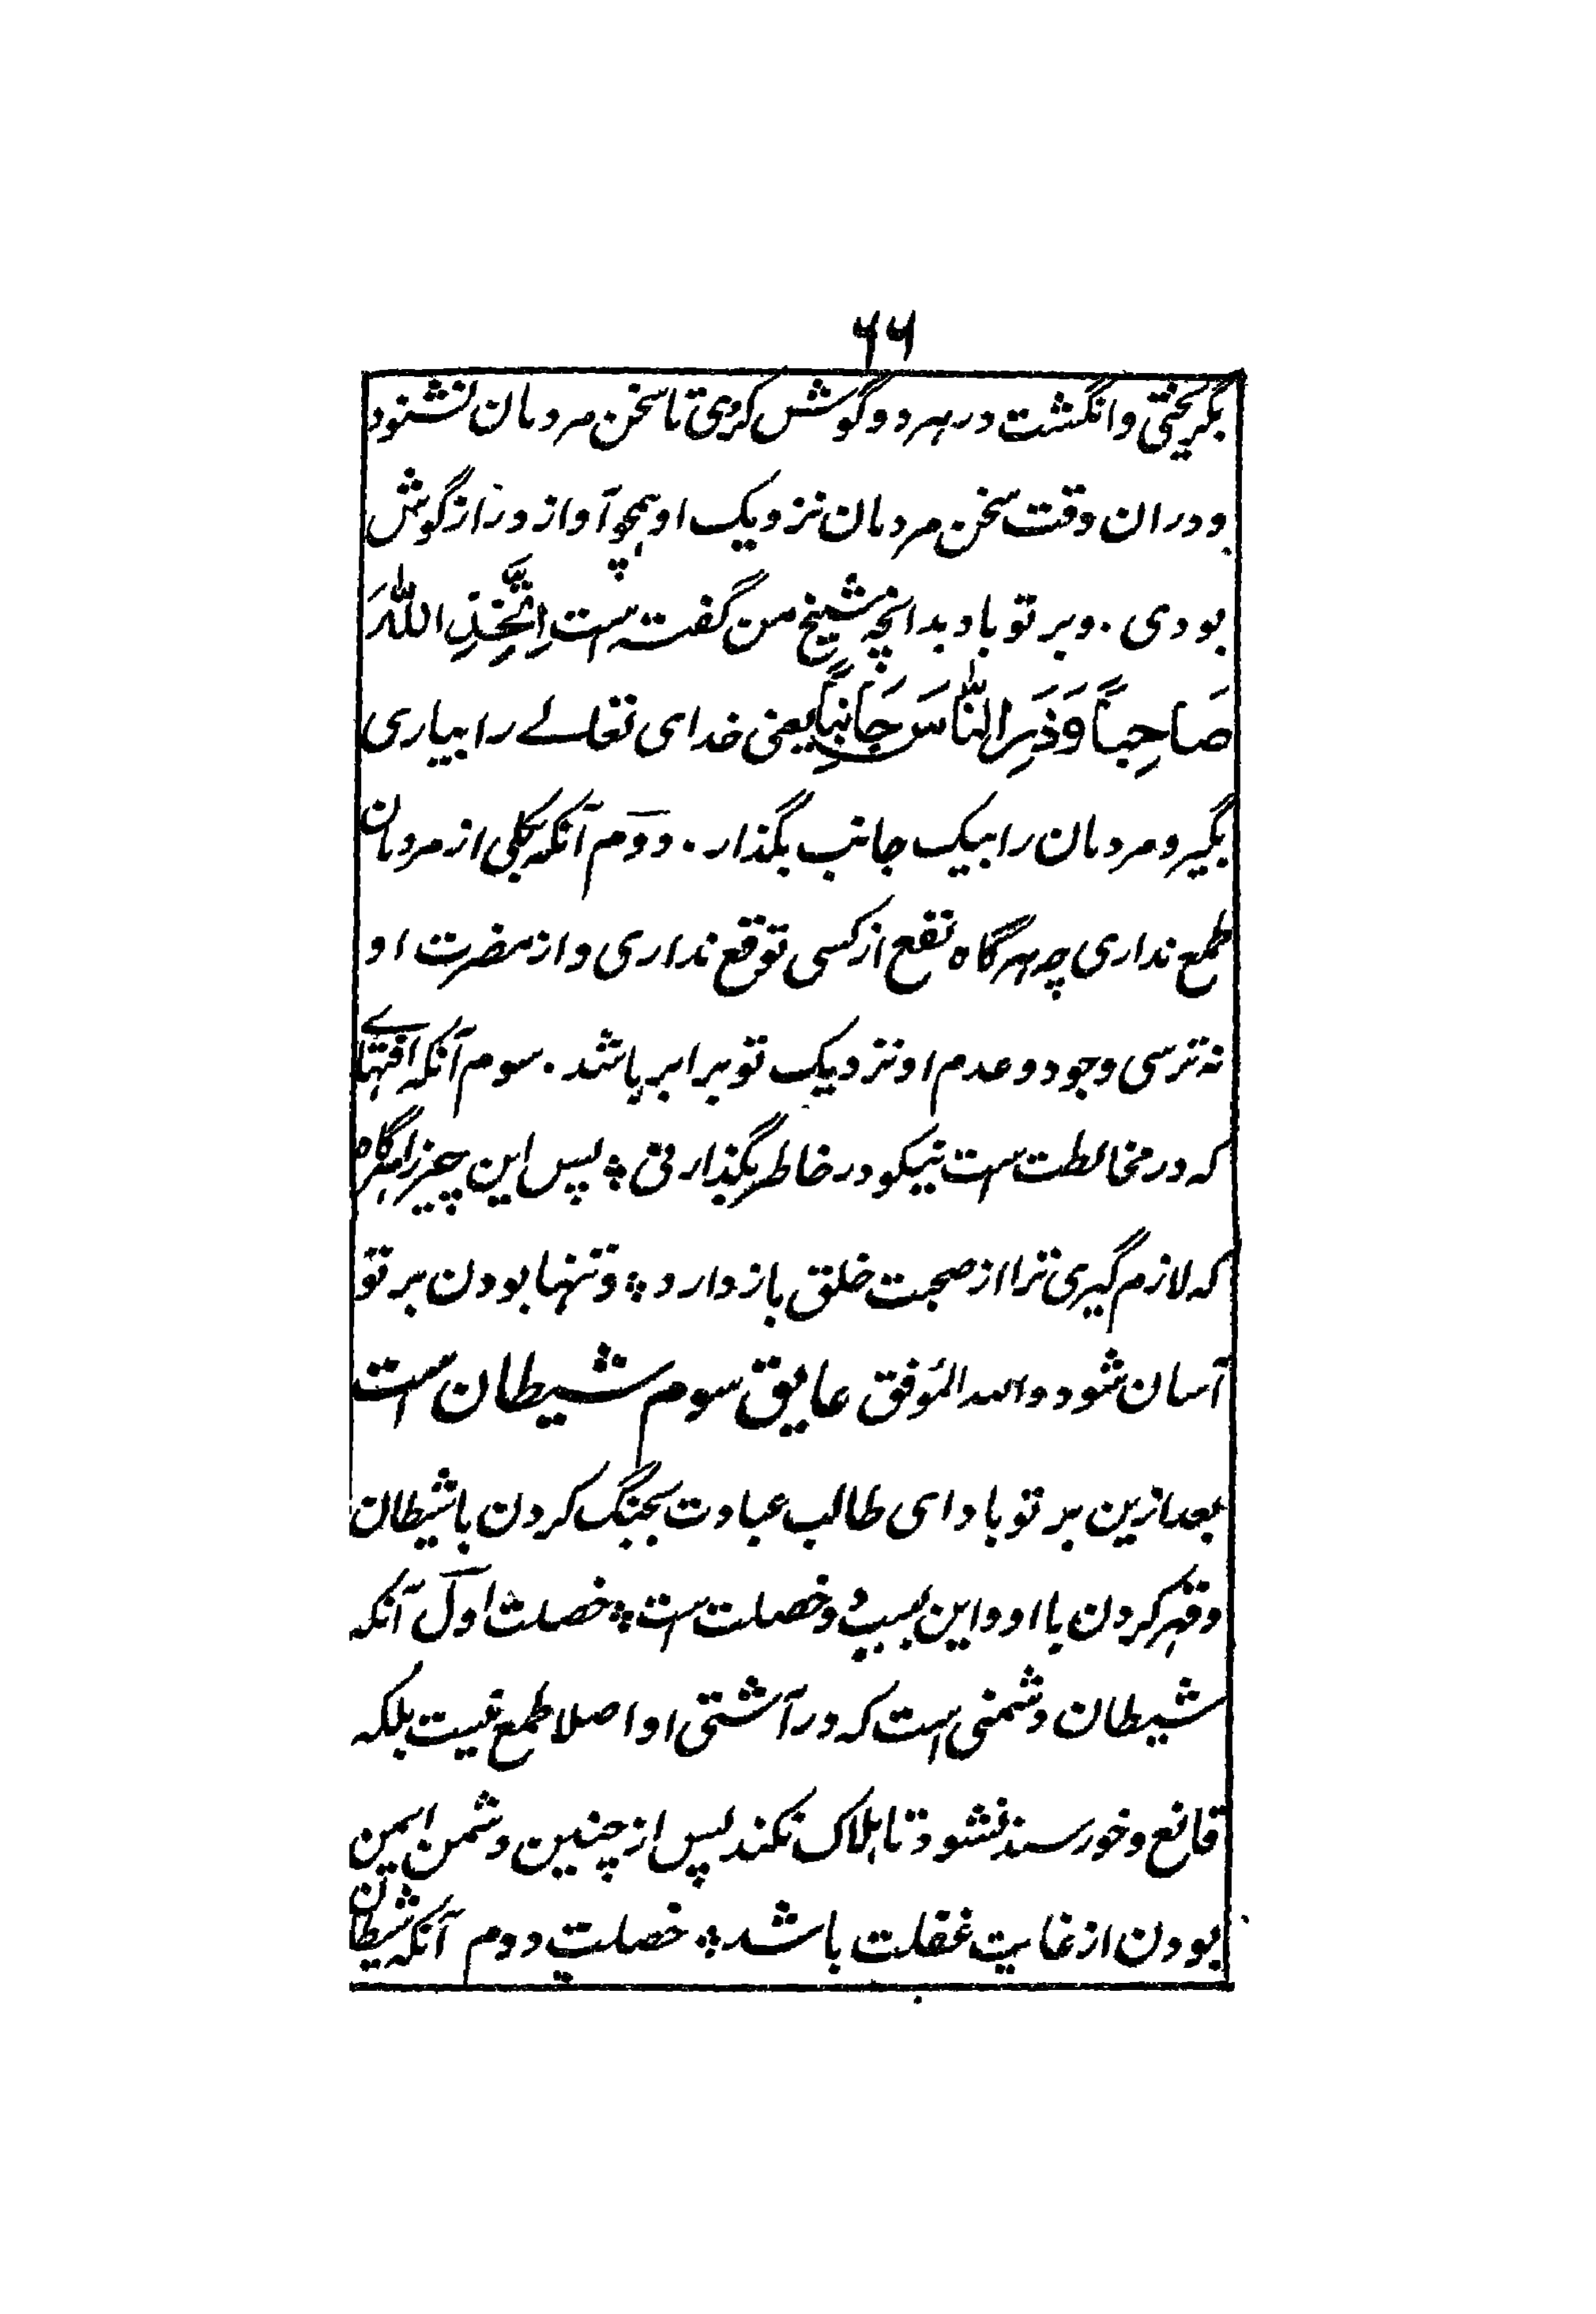 ۶۶
بگریختی و انگشت در هر دو گوش کردی تا سخن مردمان نشنود
و دران وقت سخن مردمان نزدیک او همچو آواز درازگوش
بودی . و بر تو باد بدانچه شیخ من گفته است اِتَّخِذِ اللّٰهَ
صَاحِباً وَذَرِ النَّاسَ جَانِباً یعنی خدای تعالے را بیاری
بگیر و مردمان را بیک جانب بگذار . دوّم آنکه بکلی از مردمان
طمع نداری چه هرگاه نفع از کسی توقع نداری و از مضرت او
نه ترسی وجود و عدم او نزدیک تو برابر باشد . سوم آنکه آفتهاے
که در مخالطت ست نیکو در خاطر بگذارنی ؞ پس این چیزها هرگاه
که لازم گیری ترا از صحبت خلق باز دارد ؞ و تنها بودن بر تو
آسان شود والله الموفق عایق سوم شیطان است
بعد ازین بر تو باد ای طالب عبادت بجنگ کردن با شیطان
و قهر کردن با او و این بسبب دو خصلت ست ؞ خصلت اوّل آنکه
شیطان دشمنی است که در آشتی او اصلا طمع نیست بلکه
قانع و خورسند نشود تا هلاک نکند پس از چنین دشمن ایمن
بودن از غایت غفلت باشد ؞ خصلت دوم آنکه شیطان